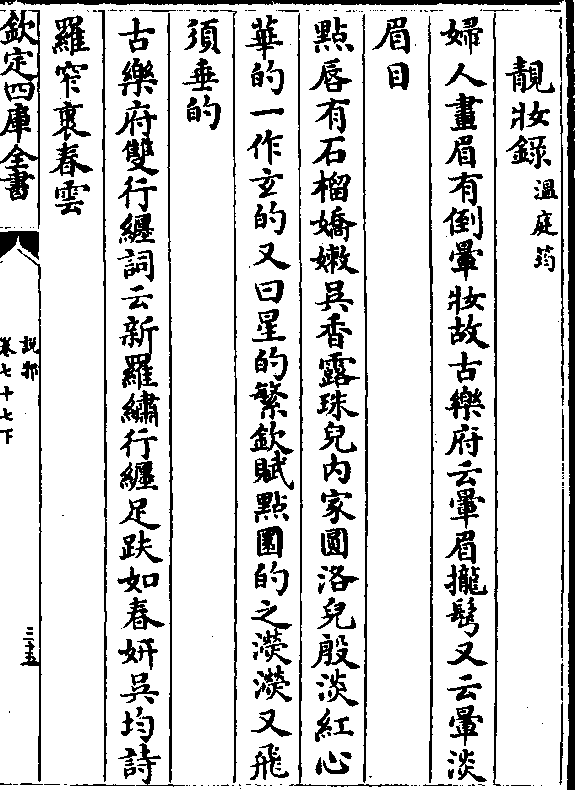 靚妝錄 溫庭筠
婦人畫眉有倒暈妝故古樂府云暈眉攏鬂又云暈淡
眉目
點唇有石榴嬌嫩吳香露珠兒内家圓洛兒殷淡紅心
華的一作玄的又曰星的繁欽賦點圜的之濙濙又飛
須垂的
古樂府雙行纏詞云新羅繡行纏足趺如春妍吳均詩
羅窄裹春雲
欽定四庫全書
說郛
卷七十七下
三十五